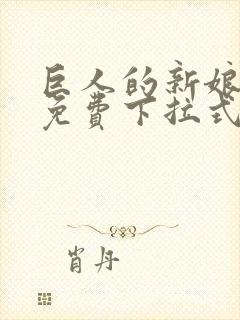 巨人的新娘
免费下拉式
肖丹